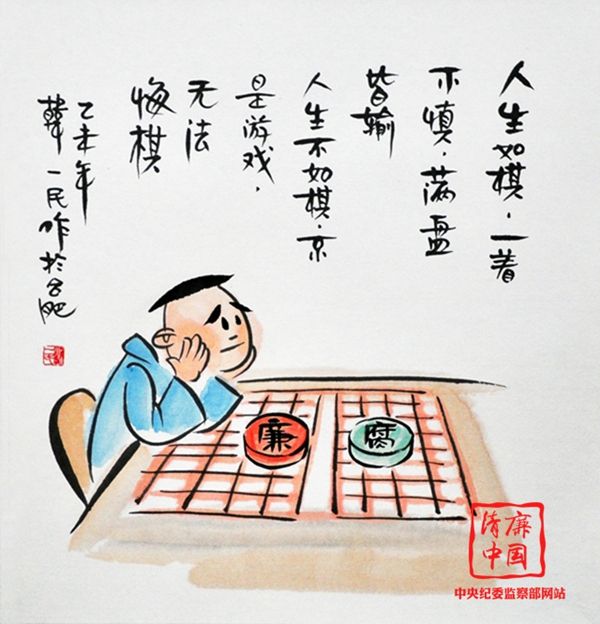 人生如棋.一着
不慎.满盘
皆输
人生不如棋.
是游戏,
无法
悔棋
乙未年
韓一民作於合肥
廉
腐
清廉
中国
中央纪委监察部网站